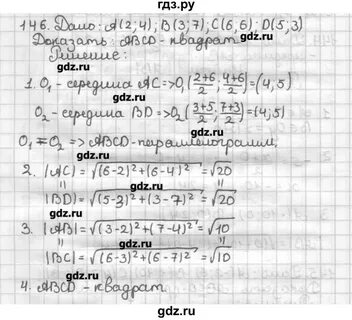 146. Дано: A(2;4); B(3;7); C(6;6); D(5;3)
Доказать: ABCD-квадрат
Решение:
1. O₁ - середина AC => O₁(2+6/2, 4+6/2) = (4;5)
O₂ - середина BD => O₂(3+5/2, 7+3/2) = (4;5)
O₁ = O₂ => ABCD-параллелограмм,
2. |AC| = √(6-2)²+(6-4)² = √20
|BD| = √(5-3)²+(3-7)² = √20
3. |AB| = √(3-2)²+(7-4)² = √10
|BC| = √(6-3)²+(6-7)² = √10
4. ABCD - квадрат